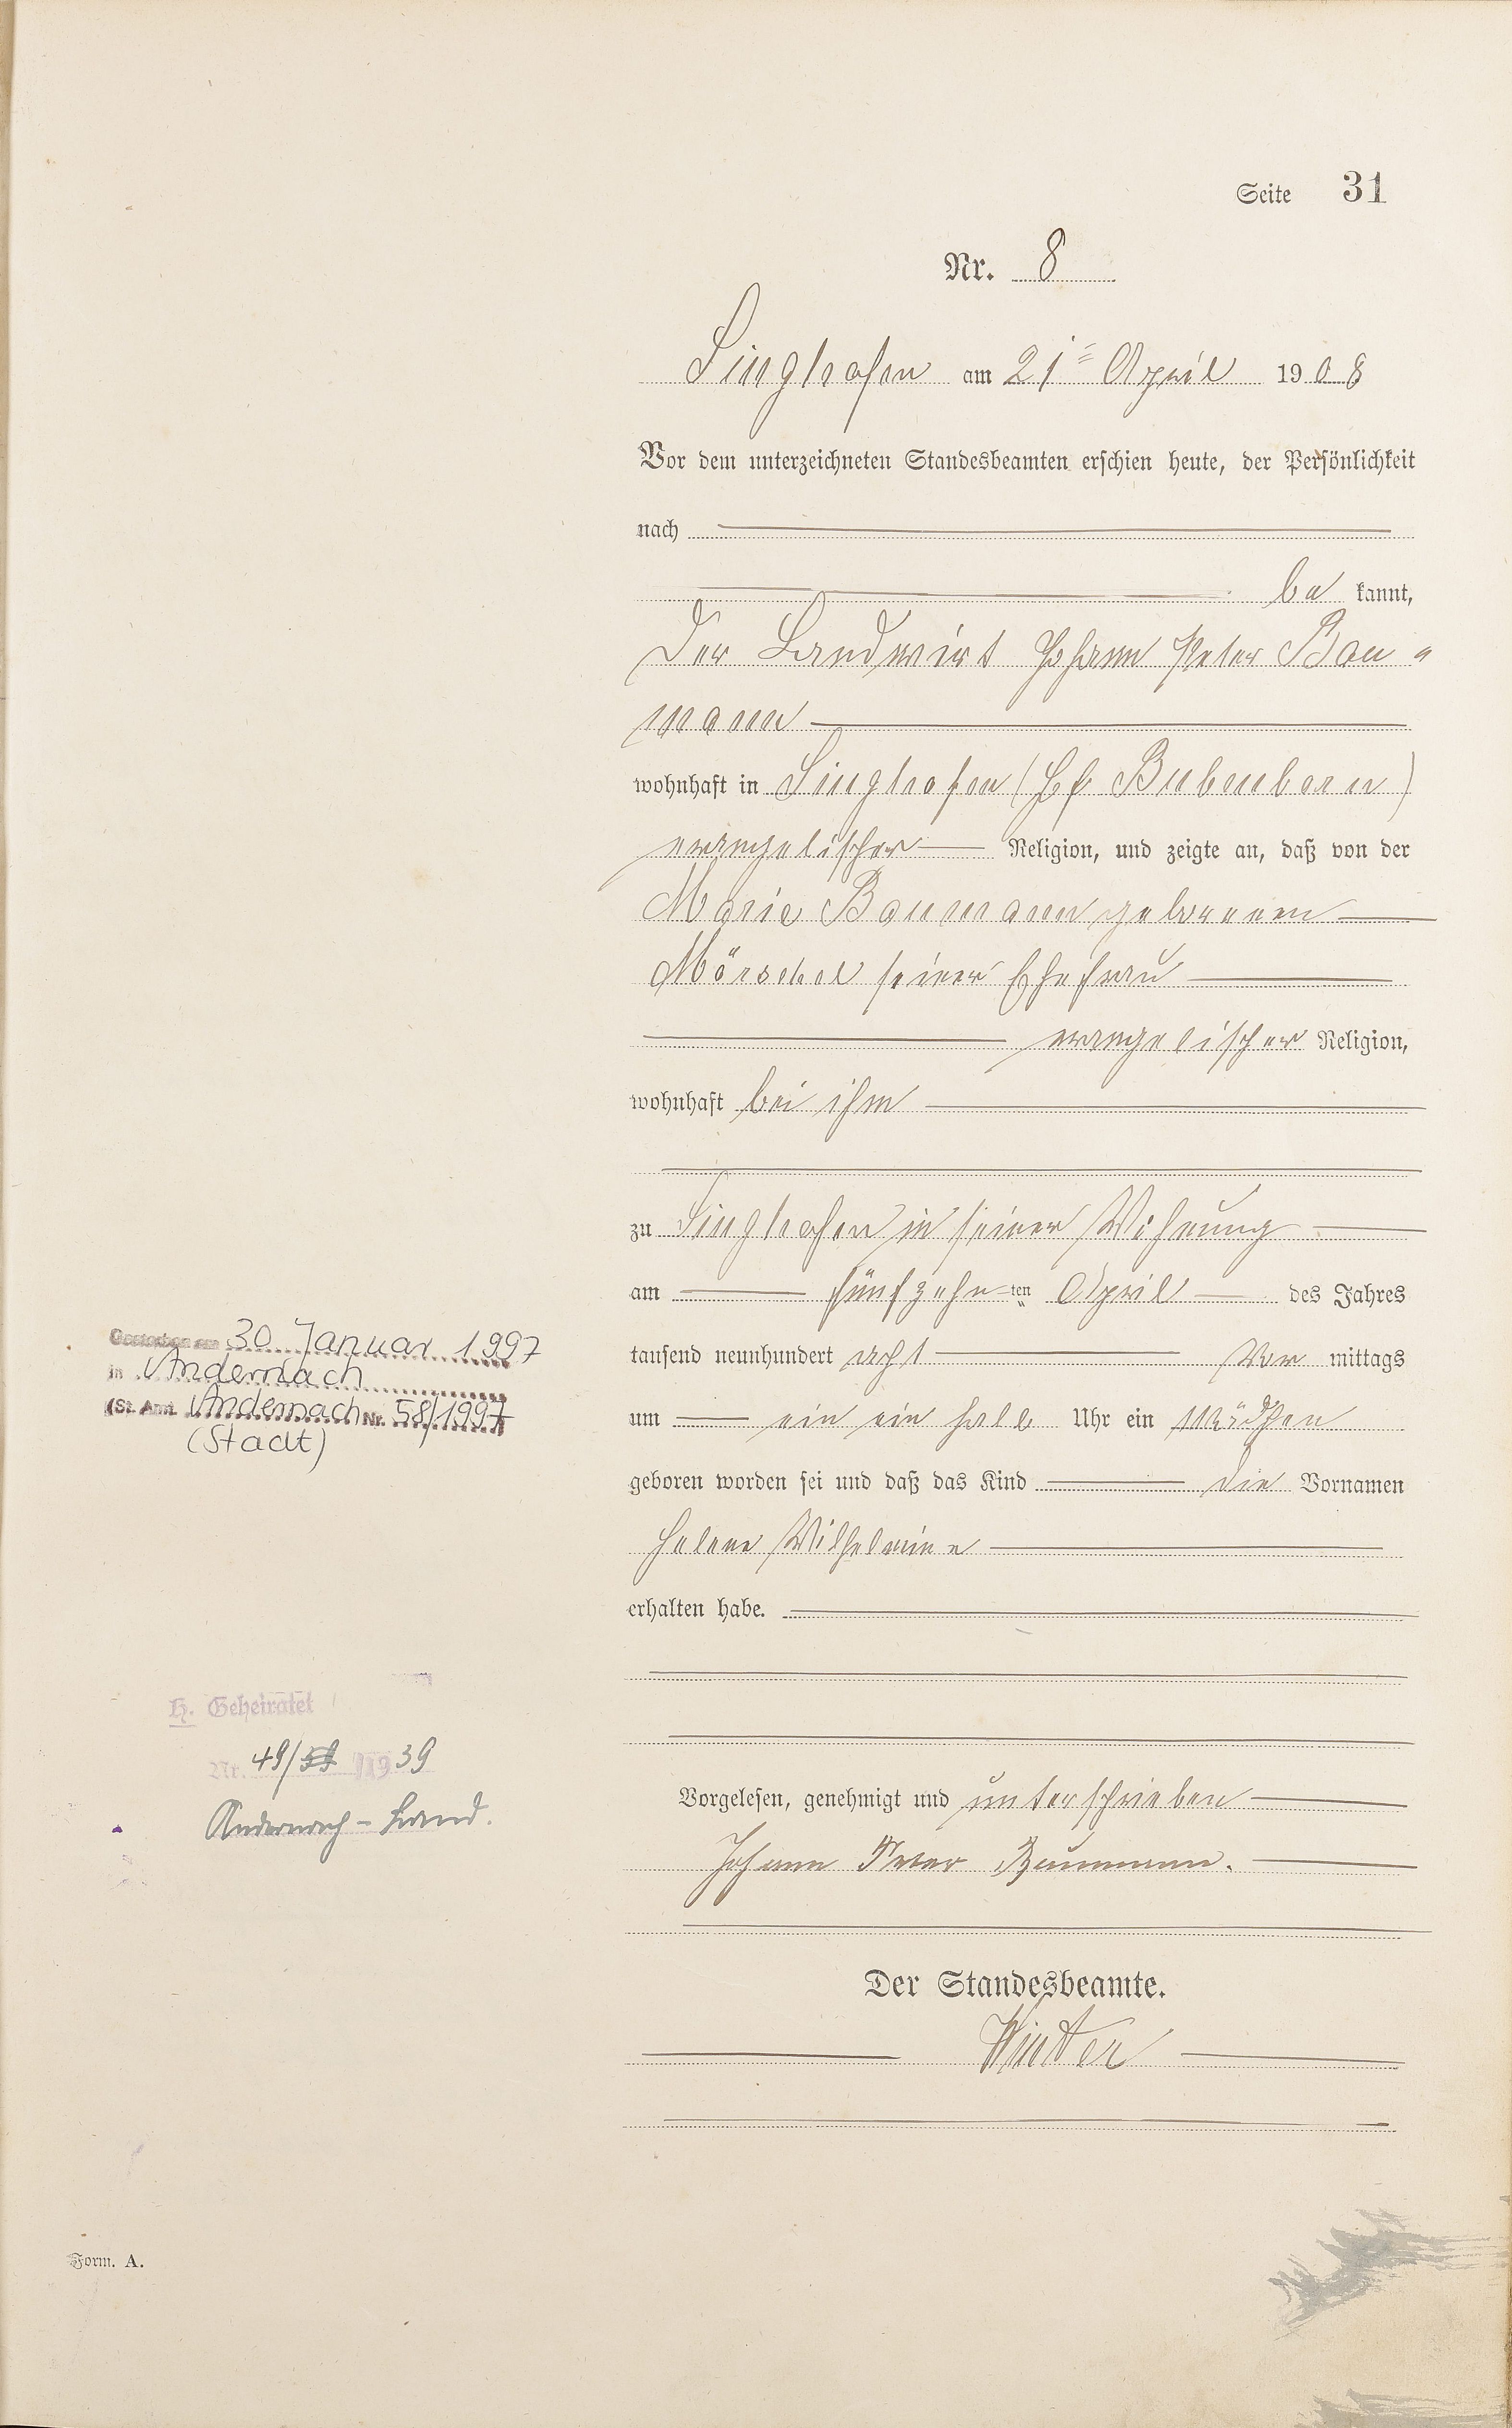 Seite 31
Nr. 8
Singhofen am 21ᵗ April 1908
Vor dem unterzeichneten Standesbeamten erschien heute, der Persönlichkeit
nach
be kannt,
Der Landwirt Johann Peter Bau-
mann
wohnhaft in Singhofen (Hf Bubenborn)
evangelischer Religion, und zeigte an, daß von der
Marie Baumann geborenen
Mörschel seiner Ehefrau
evangelischer Religion,
wohnhaft bei ihm
zu Singhofen in seiner Wohnung
am fünfzehn ten April des Jahres
tausend neunhundert acht Vor mittags
um ein ein halb Uhr ein Mädchen
geboren worden sei und daß das Kind die Vornamen
Helene Wilhelmine
erhalten habe.
Vorgelesen, genehmigt und unterschrieben
Johann Peter Baumann.
Der Standesbeamte.
Winter
Gestorben am 30. Januar 1997
in Andernach
(St. Amt Andernach Nr. 58/1997
(Stadt)
H. Geheiratet
Nr. 49/ 1939
Andernach-Land.
Form. A.